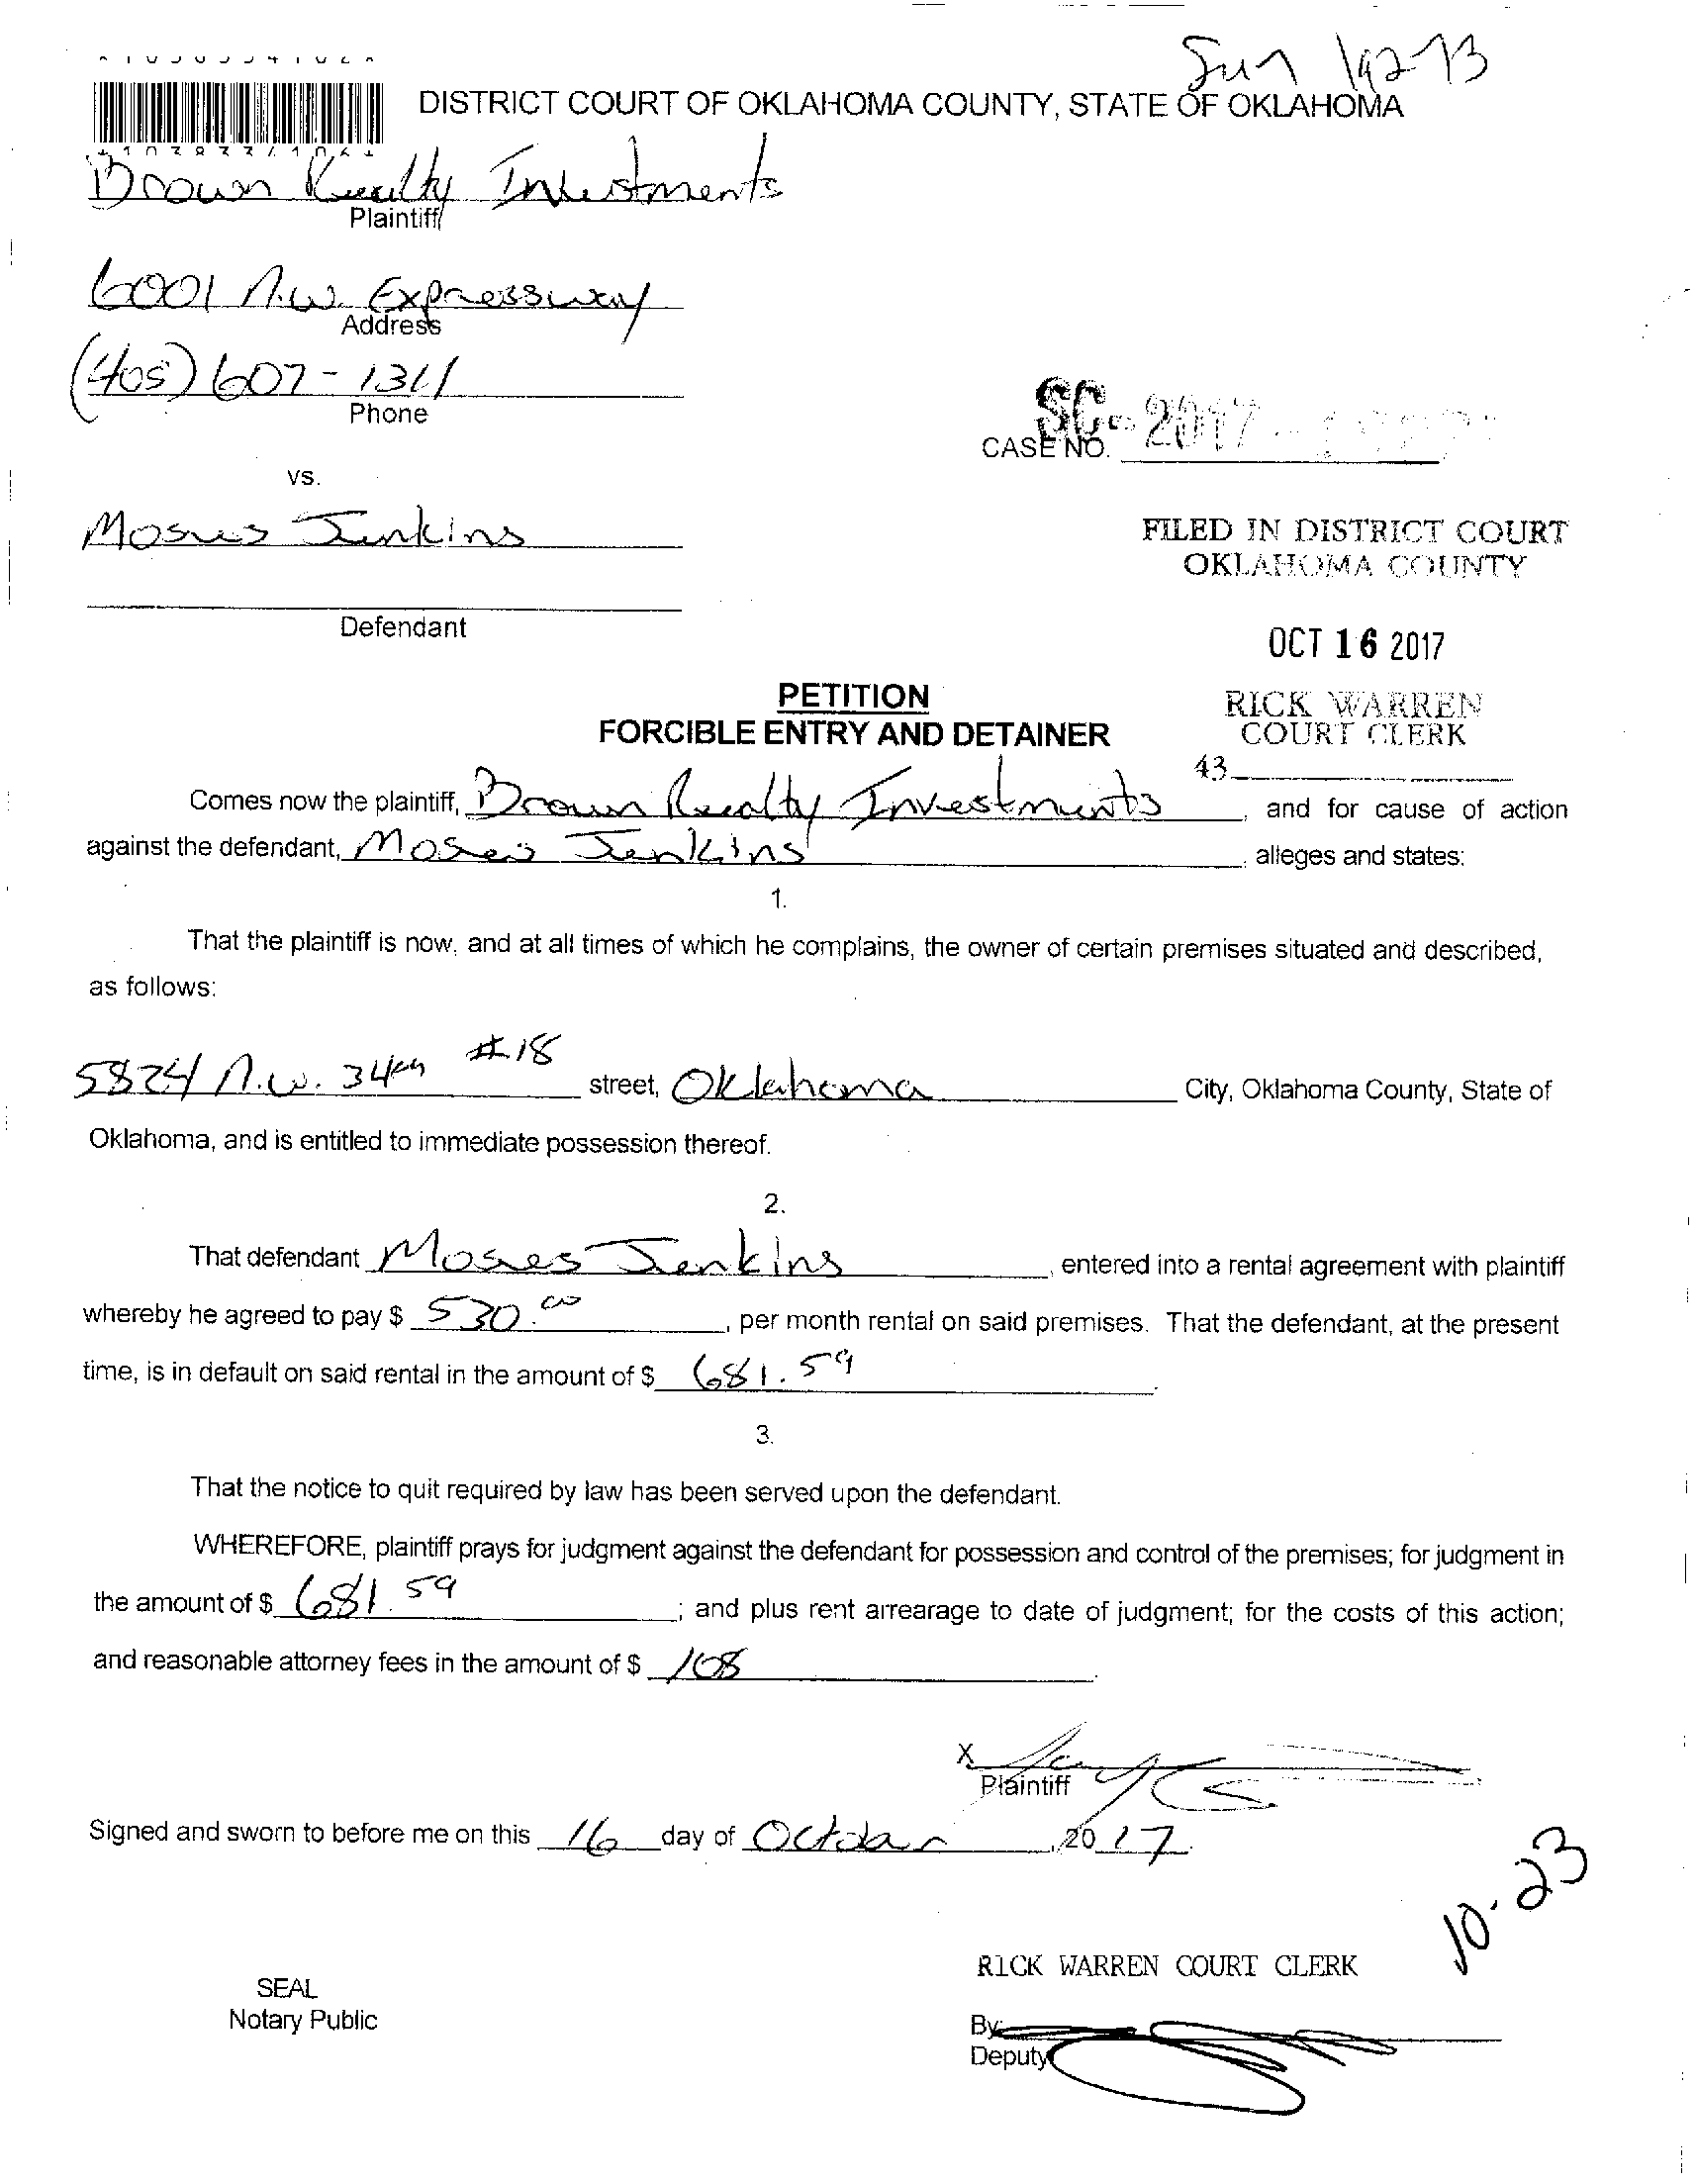 DISTRICT COURT OF OKLAHOMA COUNTY, STATE OF OKLAHOMA
Brown Realty Investments
Plaintiff
6001 N.W. Expressway
Address
(405) 607-1311
Phone
SC-2017
CASE NO.
vs.
Moses Jenkins
FILED IN DISTRICT COURT
OKLAHOMA COUNTY
Defendant
OCT 16 2017
PETITION
RICK WARREN
FORCIBLE ENTRY AND DETAINER
COURT CLERK
43
Comes now the plaintiff, Brown Realty Investments, and for cause of action
against the defendant, Moses Jenkins, alleges and states:
1.
That the plaintiff is now, and at all times of which he complains, the owner of certain premises situated and described,
as follows:
5824 N.W. 34th #18 street, Oklahoma City, Oklahoma County, State of
Oklahoma, and is entitled to immediate possession thereof.
2.
That defendant Moses Jenkins, entered into a rental agreement with plaintiff
whereby he agreed to pay $ 530.00, per month rental on said premises. That the defendant, at the present
time, is in default on said rental in the amount of $ 681.59.
3.
That the notice to quit required by law has been served upon the defendant.
WHEREFORE, plaintiff prays for judgment against the defendant for possession and control of the premises; for judgment in
the amount of $ 681.59; and plus rent arrearage to date of judgment; for the costs of this action;
and reasonable attorney fees in the amount of $ 108.
X
Plaintiff
Signed and sworn to before me on this 16 day of October, 2017.
10-23
RICK WARREN COURT CLERK
SEAL
Notary Public
By:
Deputy